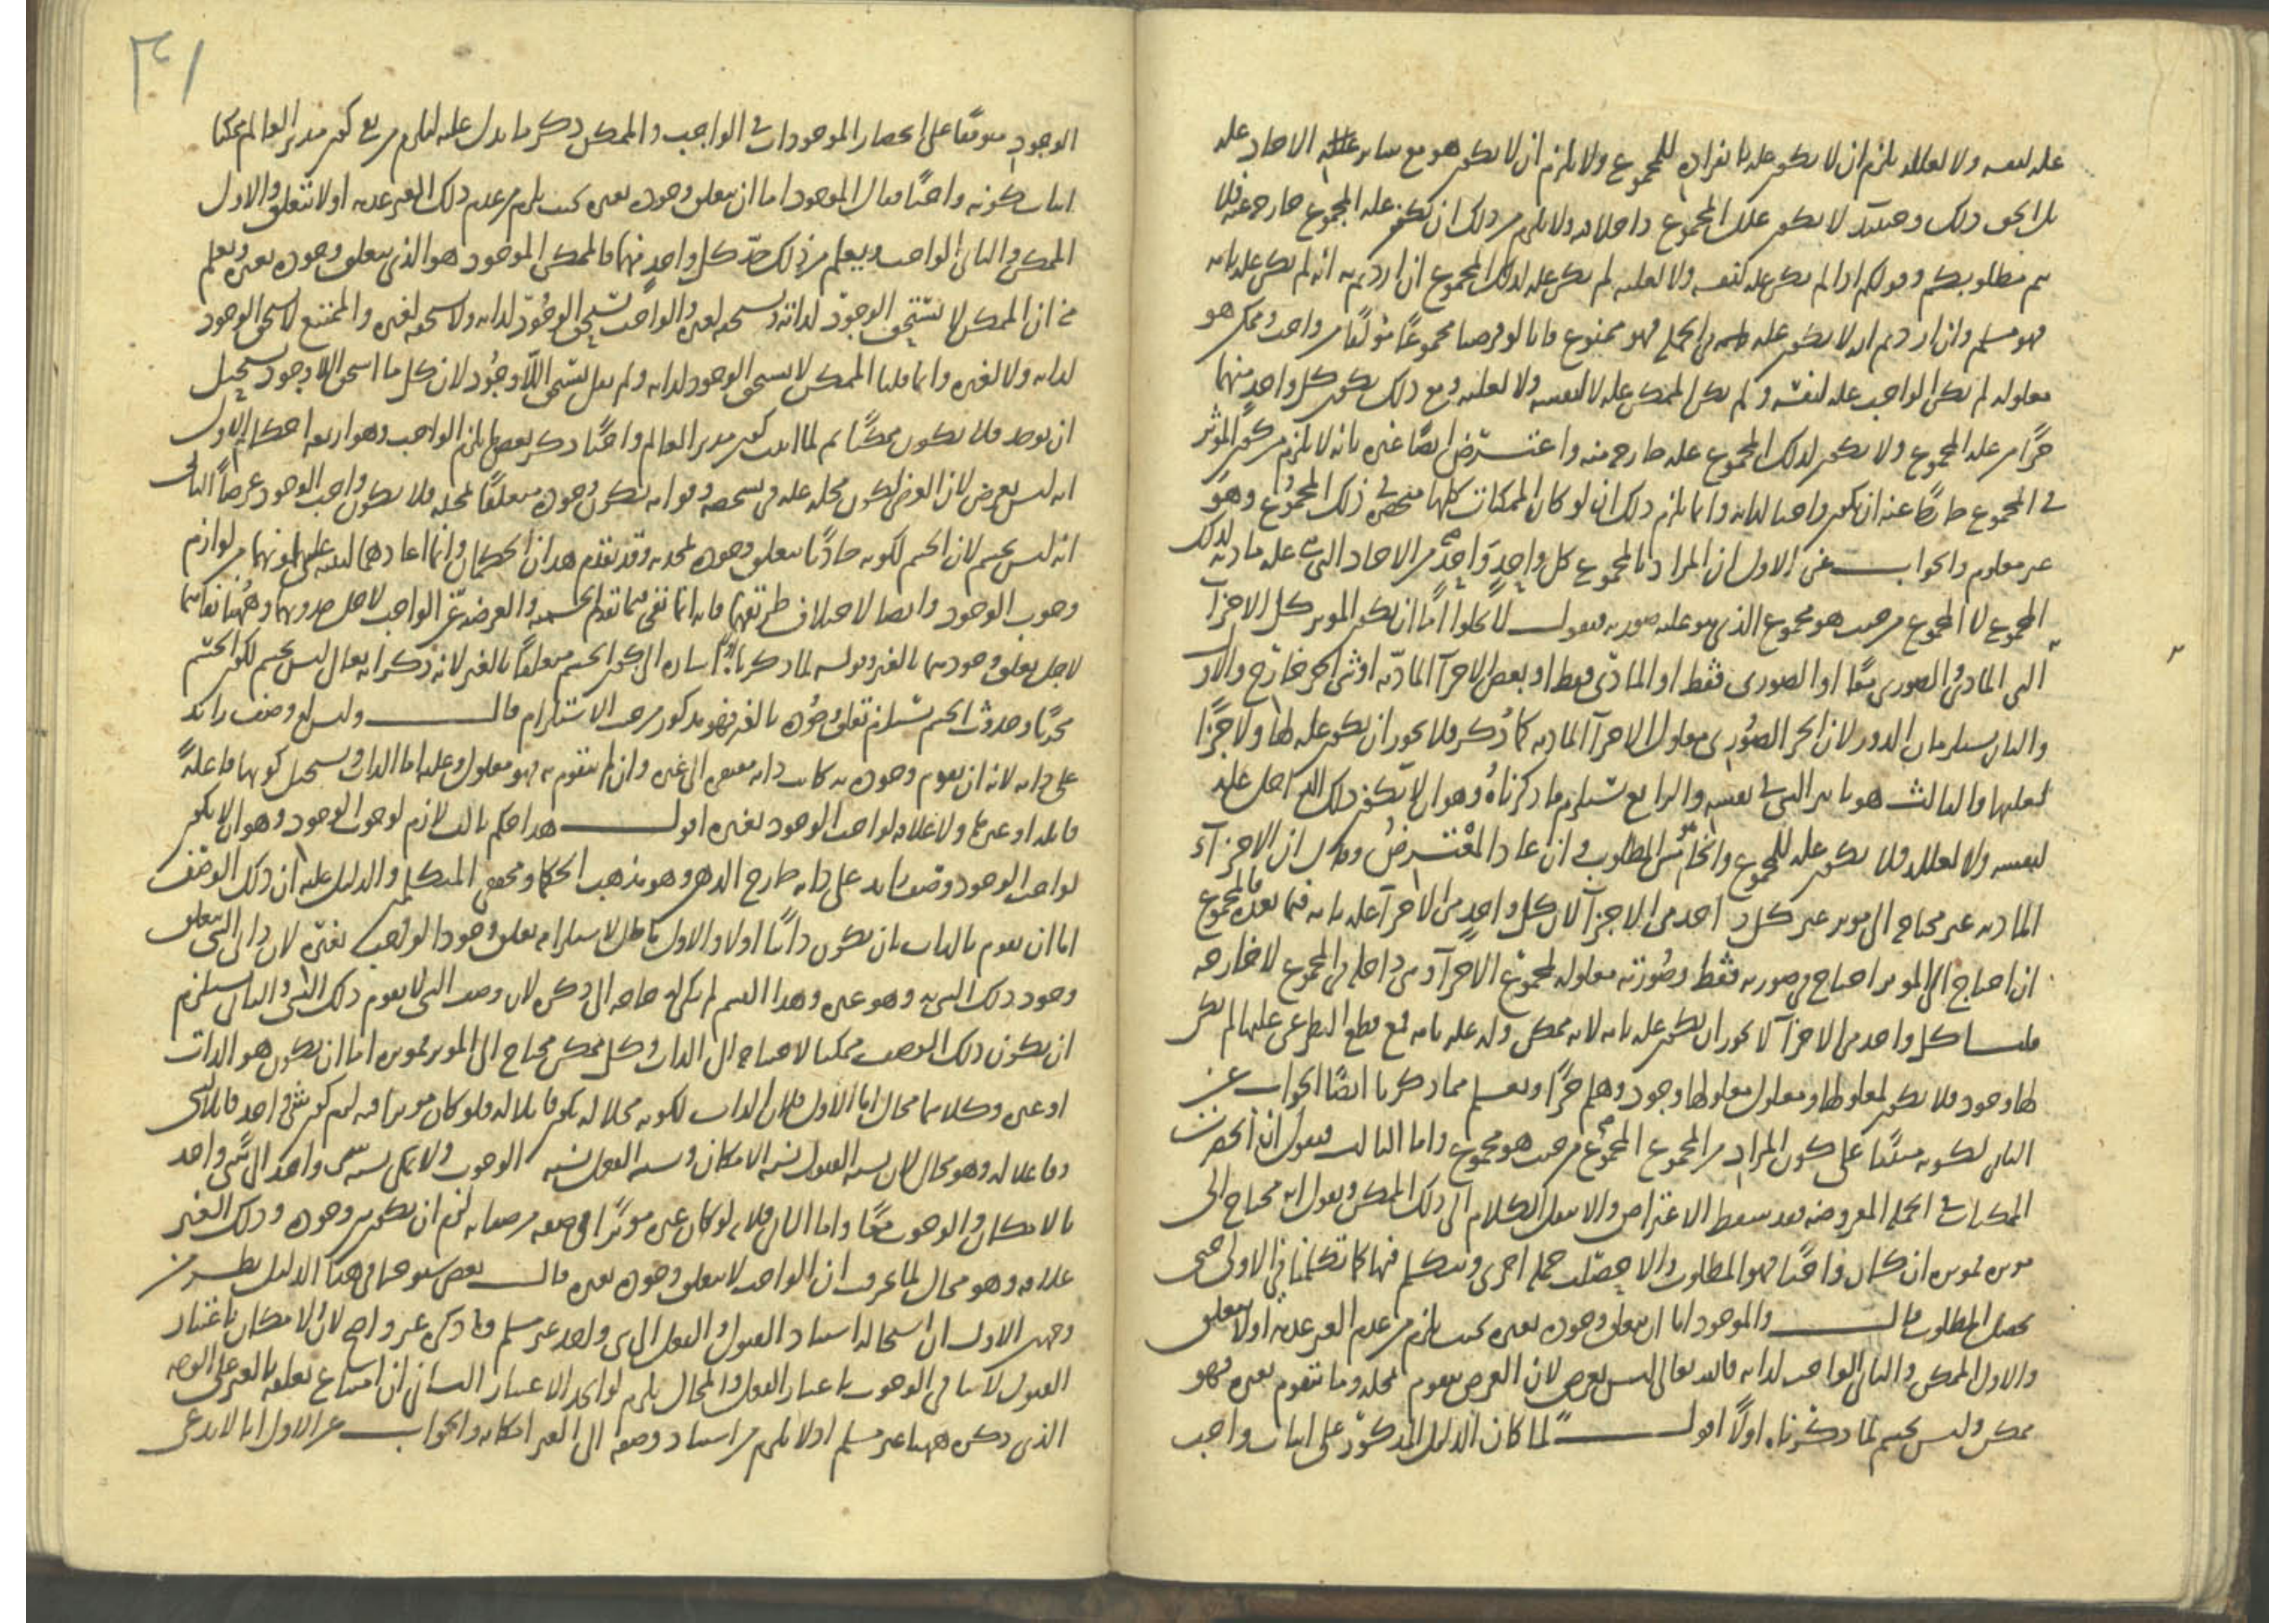 علة لنفسه ولا لعلله يلزم ان لا يكون علة بانفراده للمجموع ولا يلزم ان لا يكون هو مع ساير الاحاد علة
بل الحق ذلك وحينئذ لا يكون علة المجموع داخلا فيه ولا يلزم من ذلك ان يكون علة المجموع خارجة عنه فلا
يتم مطلوبكم وقولكم اذا لم يكن علة لنفسه ولا لعلته لم يكن علة لذلك المجموع ان اردتم به انه لم يكن علة تامة
فهو مسلم وان اردتم انه لا يكون علة في الجملة فهو ممنوع فانا لو فرضنا مجموعا مؤلفا من واجب وممكن هو
معلوله لم يكن الواجب علة لنفسه ولم يكن الممكن علة لا لنفسه ولا لعلته ومع ذلك يكون كل واحد منهما
جزءا من علة المجموع ولا يكون لذلك المجموع علة خارجة منه واعترض ايضا غيره بانه لا يلزم من كون المؤثر
في المجموع خارجا عنه ان يكون واجبا لذاته وانما يلزم ذلك ان لو كان الممكنات كلها منحصرة في ذلك المجموع وهو
غير معلوم والجواب عن الاول ان المراد بالمجموع كل واحد واحد من الاحاد التي هي علة مادية لذلك
المجموع لا المجموع من حيث هو مجموع الذي هو علة صورية فنقول لا يخلوا اما ان يكون الموثر كل الاجزآ
التي المادي والصوري معا او الصوري فقط او المادي فقط او بعض الاجزآ المادية او شى اخر خارج والاول
والثاني يستلزمان الدور لان الجزء الصوري معلول الاجزآ المادية كما ذكر فلا يجوز ان يكون علة لها ولا جزءا
لعلتها والثالث هو تاثير الشى في نفسه والرابع يستلزم ما ذكرناه وهو ان لا يكون ذلك الداخل علة
لنفسه ولا لعلله فلا يكون علة للمجموع والخامس المطلوب فان عاد المعترض وقال ان الاجزآء
المادية غير محتاج الى موثر غير كل واحد من الاجزآ لان كل واحد من الاجزآ علة تامة فيما بعده فالمجموع
ان احتاج الى الموثر احتاج في صورته فقط وصورته معلولة لمجموع الاجزآ وهي داخلة في المجموع لا خارجة
قلنا كل واحد من الاجزآ لا يجوز ان يكون علة تامة لانه ممكن وله علة تامة فمع قطع النظر عن علتها لم يكن
لها وجود فلا يكون لمعلولها ومعلول معلولها وجود وهلم جرا ويعلم مما ذكرنا ايضا الجواب عن
الثاني لكونه مبنيا على كون المراد من المجموع المجموع من حيث هو مجموع واما الثالث فنقول ان انحصرت
الممكنات في الجملة المفروضة فقد سقط الاعتراض والا ننقل الكلام الى ذلك الممكن ونقول انه محتاج الى
موثر فموثره ان كان واجبا فهو المطلوب والا حصلت جملة اخرى ونتكلم فيها كما تكلمنا في الاولى حتى
يحصل المطلوب قال والموجود اما ان يتعلق وجوده بغيره بحيث يلزم من عدم الغير عدمه او لا يتعلق
والاول الممكن والثاني الواجب لذاته فالله تعالى ليس بعرض لان العرض يتقوم بمحله وما يتقوم بغيره فهو
ممكن وليس بجسم لما ذكرناه اولا اقول لما كان الدليل المذكور على اثبات واجب
الوجود موقوفا على انحصار الموجودات في الواجب والممكن ذكر ما يدل عليه ليلزم من نفي كون مدبر العالم ممكنا
اثبات كونه واجبا فقال الموجود اما ان يتعلق وجوده بغيره بحيث يلزم من عدم ذلك الغير عدمه او لا يتعلق والاول
الممكن والثاني الواجب ويعلم من ذلك حد كل واحد منهما فالممكن الموجود هو الذي يتعلق وجوده بغيره ويعلم
من ان الممكن لا يستحق الوجود لذاته ويستحقه لغيره والواجب يستحق الوجود لذاته ولا يستحقه لغيره والممتنع لا يستحق الوجود
لذاته ولا لغيره وانما قلنا الممكن لا يستحق الوجود لذاته ولم نقل يستحق اللاوجود لان كل ما استحق اللاوجود يستحيل
ان يوجد فلا يكون ممكنا ثم لما اثبت كون مدبر العالم واجبا ذكر بعض لوازم الواجب وهو اربعة احكام الاول
انه ليس بعرض لان العرض يكون محله علة في تشخصه وقوامه فيكون وجوده متعلقا بمحله فلا يكون واجب الوجود عرضا الثاني
انه ليس بجسم لان الجسم لكونه حادثا يتعلق وجوده بمحدثه وقد تقدم هذان الحكمان وانما اعادهما لينبه على كونهما من لوازم
وجوب الوجود وايضا لاختلاف طريقيهما فانه انما نفى فيما تقدم الجسمية والعرضية عن الواجب لاجل حدوثهما وههنا نفاهما
لاجل تعلق وجودهما بالغير وقوله لما ذكرنا اولا اشارة الى كون الجسم متعلقا بالغير لانه ذكر انه تعالى ليس بجسم لكون الجسم
محدثا وحدوث الجسم يستلزم تعلق وجوده بالغير فهو مذكور من حيث الاستلزام قال وليس له وصف زائد
على ذاته لانه ان تقوم وجوده به كانت ذاته مفتقرة الى غيره وان لم يتقوم به فهو معلول وعلته اما الذات ويستحيل كونها فاعلة
قابلة او غيرها ولا علاقة لواجب الوجود بغيره اقول هذا حكم ثالث لازم لوجوب الوجود وهو ان لا يكون
لواجب الوجود وصف زايد على ذاته خارج الذهن وهو مذهب الحكما ومحققي المتكلمين والدليل عليه ان ذلك الوصف
اما ان يقوم بالذات بان يكون ذاتيا او لا والاول باطل لاستلزامه تعلق وجود الواجب بغيره لان ذاتي الشى يتعلق
وجود ذلك الشى به وهو غيره وهذا القسم لم يكن له حاجة الى ذكره لان وصف الشى لا يقوم ذلك الشى والثاني يستلزم
ان يكون ذلك الوصف ممكنا لاحتياجه الى الذات وكل ممكن محتاج الى الموثر فموثره اما ان يكون هو الذات
او غيره وكلاهما محال اما الاول فلان الذات لكونه محلا له يكون قابلا له فلو كان موثرا فيه لزم كون شى واحد قابلا لشى
وفاعلا له وهو محال لان نسبة القبول نسبة الامكان ونسبة الفعل نسبة الوجوب ولا يمكن نسبة شى واحد الى شى واحد
بالامكان والوجوب معا واما الثاني فلانه لو كان غيره موثرا في صفة من صفاته لزم ان يكون بين وجوده وذلك الغير
علاقة وهو محال لما عرفت ان الواجب لا يتعلق وجوده بغيره قال بعض شيوخنا في هذا الدليل نظر من
وجهين الاول ان استحالة استناد القبول والفعل الى شى واحد غير مسلم وما ذكره غير واضح لان الامكان باعتبار
القبول لا ينافي الوجوب باعتبار الفعل والمحال يلزم لو اتحد الاعتبار الثاني ان امتناع تعلقه بالغير على الوجه
الذي ذكره ههنا غير مسلم اذ لا يلزم من استناد وصفه الى الغير امكانه والجواب عن الاول انا لا ندعي